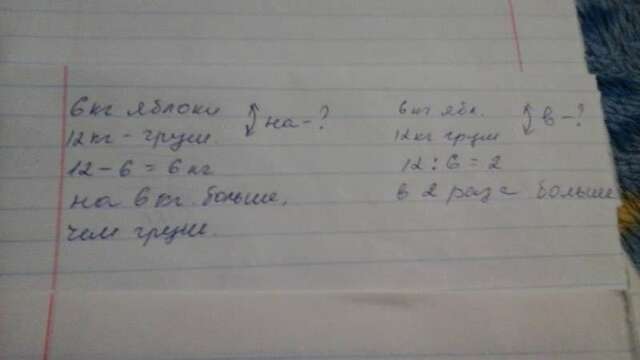 6кг яблоки
12кг - груш. на - ?
12 - 6 = 6 кг
на 6 кг больше,
чем груш.
6кг ябл.
12кг груш в - ?
12 : 6 = 2
в 2 раза больше